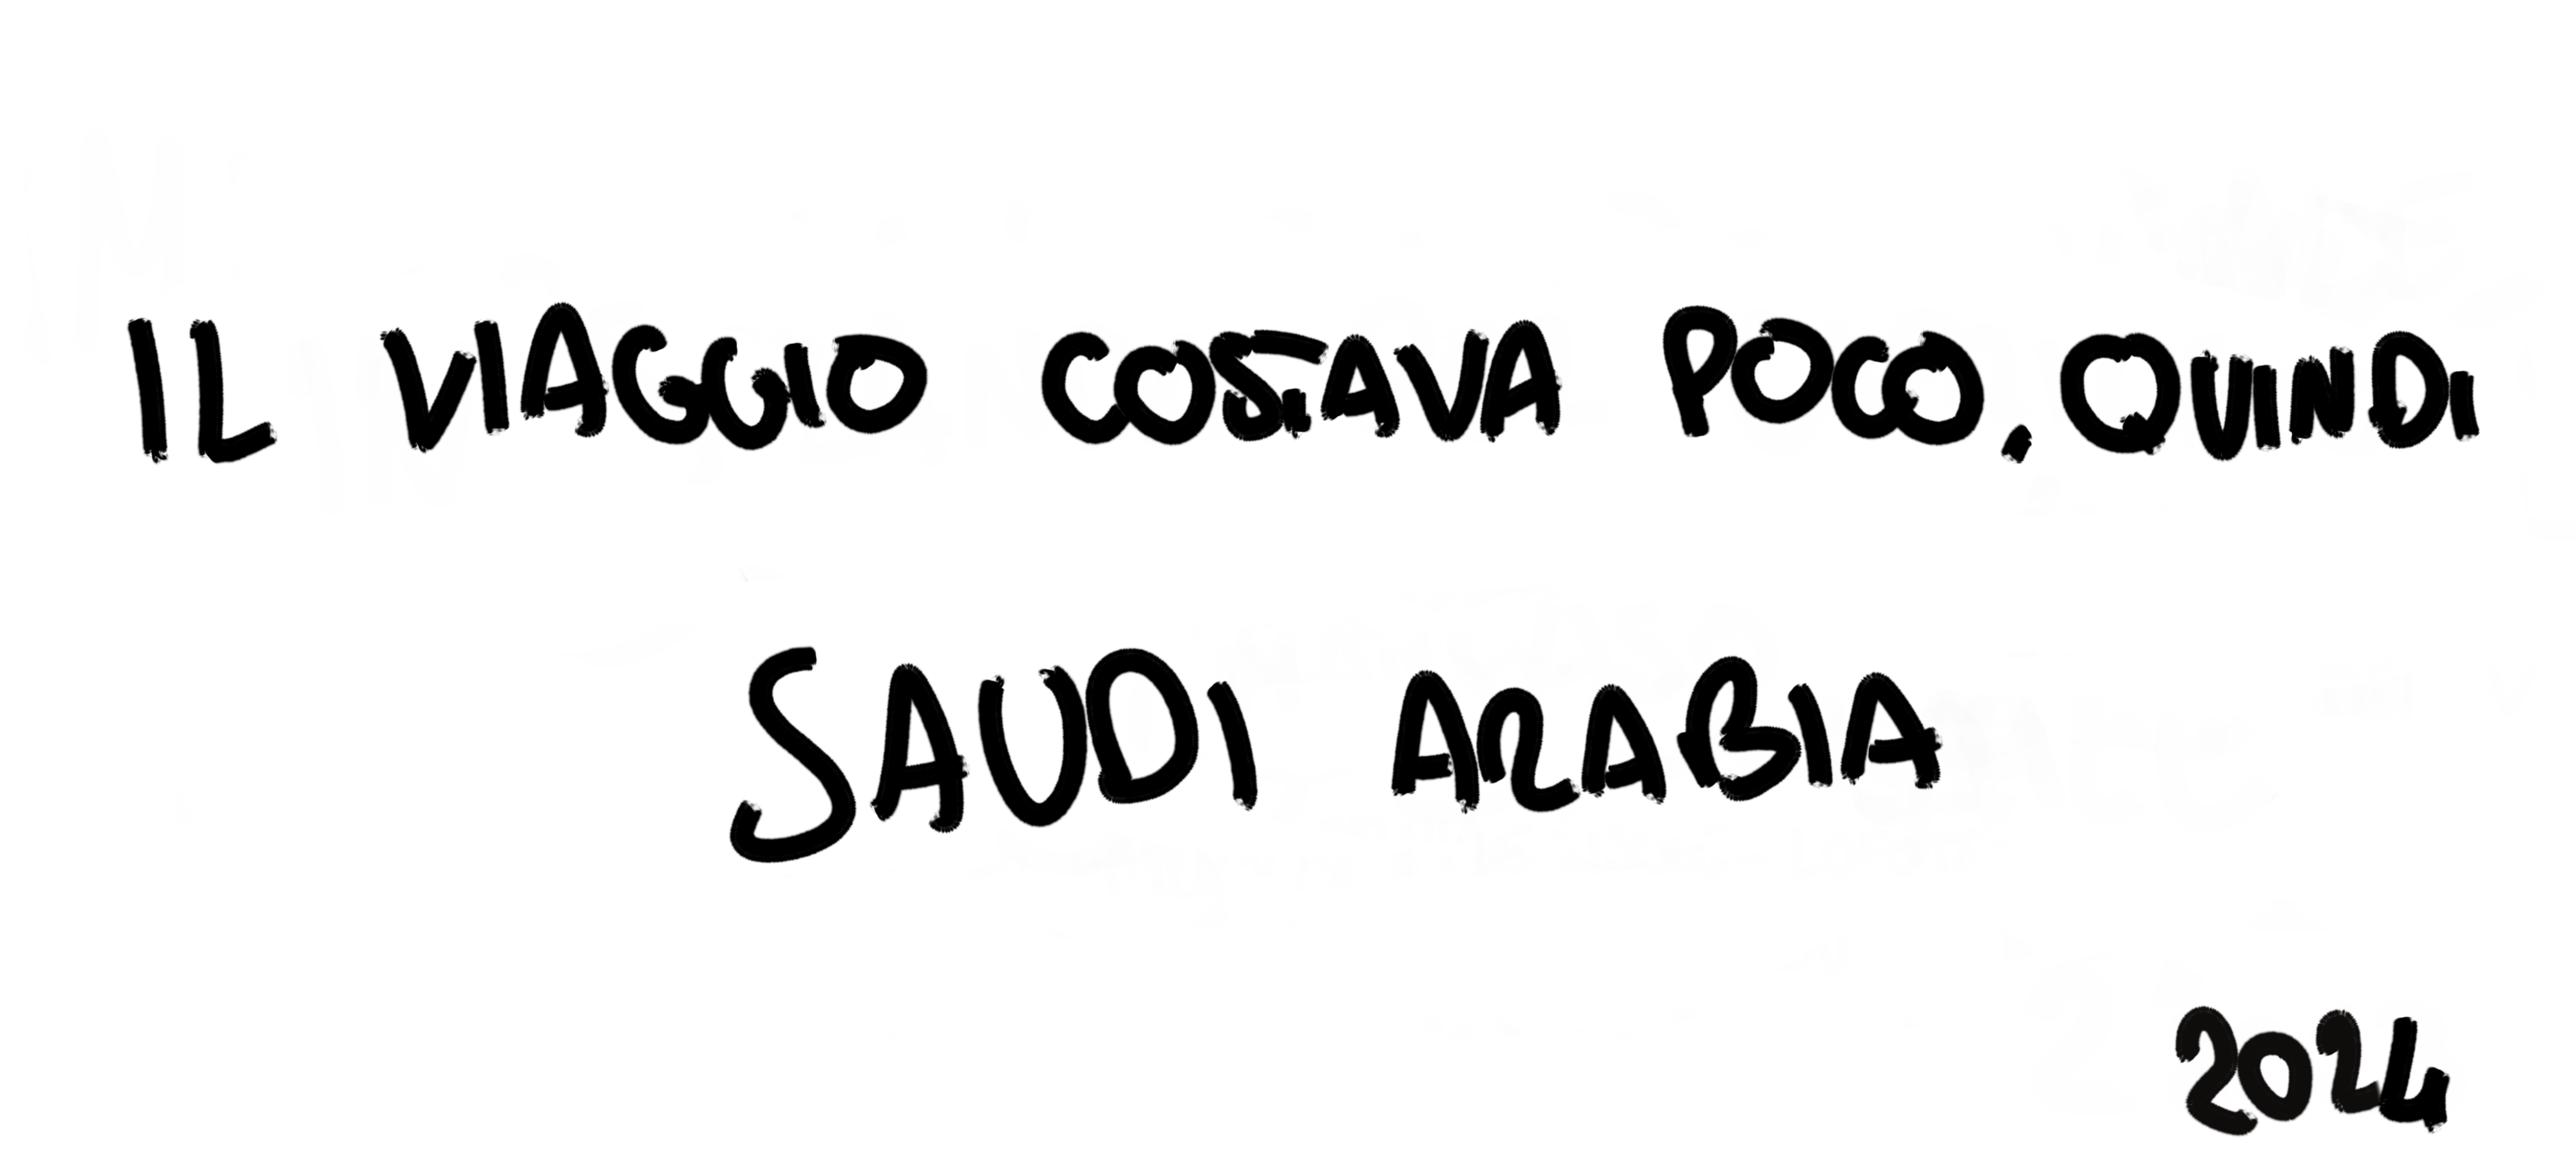 IL VIAGGIO COSTAVA POCO. QUINDI
SAUDI ARABIA
2024